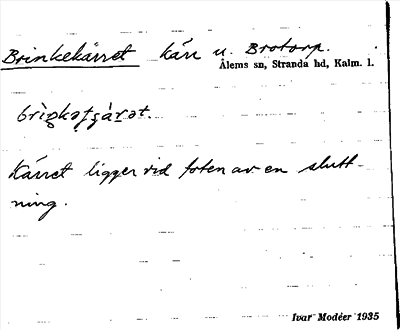 Brinkekärret kärr u. Brotorp.
Ålems sn, Stranda hd, Kalm. l.
Kärret ligger vid foten av en slutt-
ning.
Ivar Modéer 1935